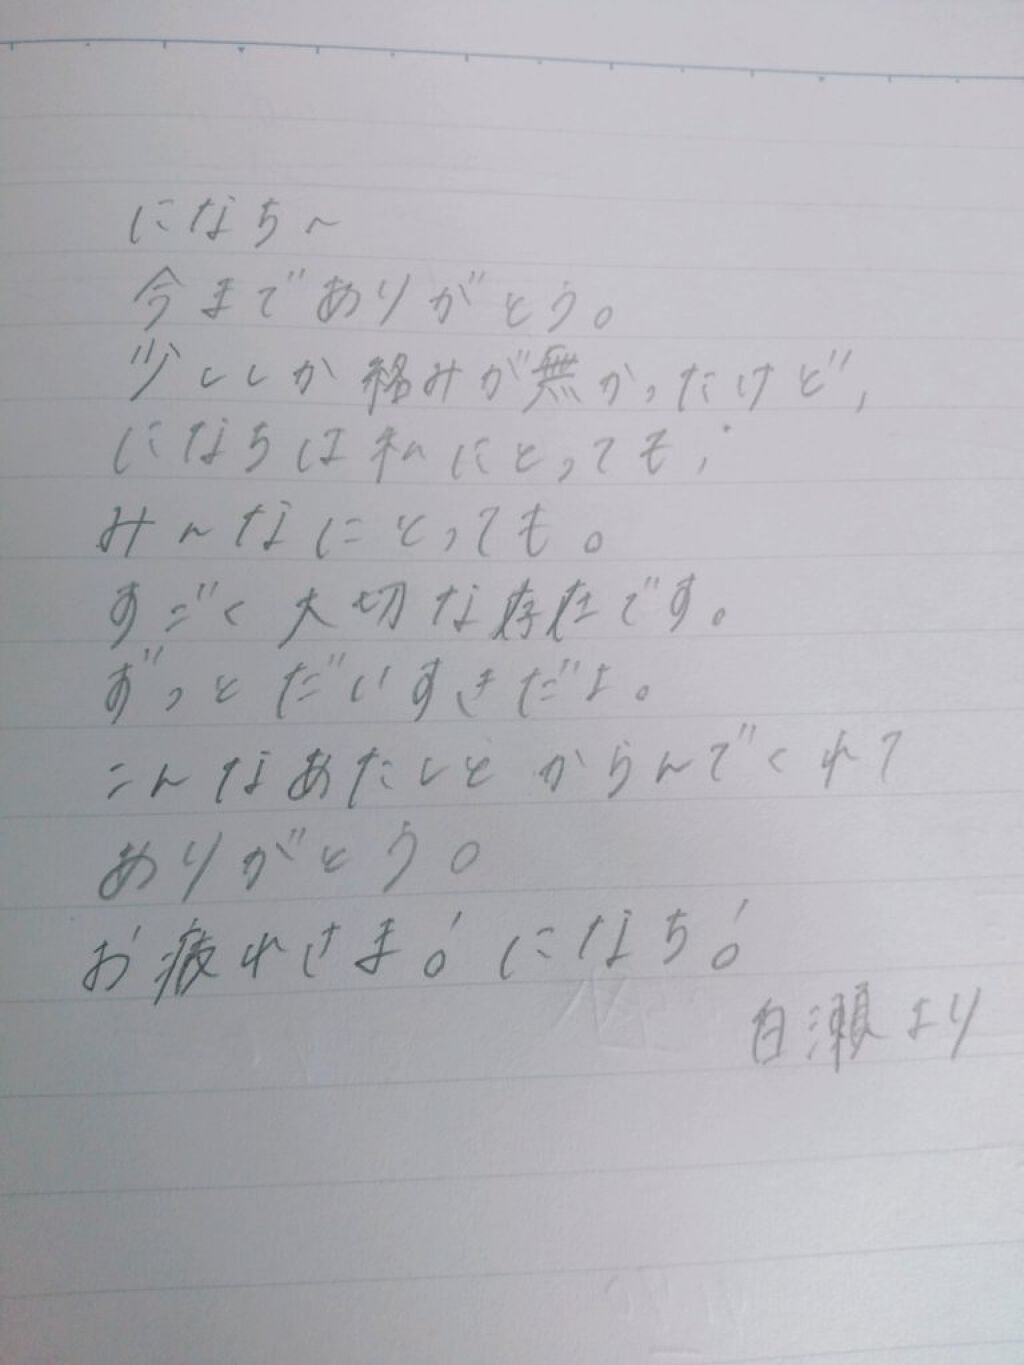 になち～
今までありがとう。
少ししか絡みが無かったけど、
になちは私にとっても、
みんなにとっても。
すごく大切な存在です。
ずっとだいすきだよ。
こんなあたしとからんでくれて
ありがとう。
お疲れさま!になち!
白瀬より